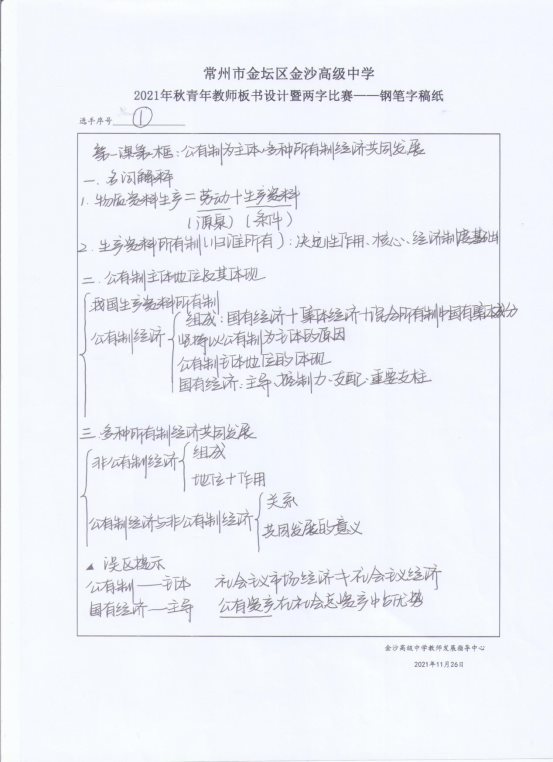 常州市金坛区金沙高级中学
2021年秋青年教师板书设计暨两字比赛——钢笔字稿纸
选手序号 ①
第一课第一框：公有制为主体,多种所有制经济共同发展
一、名词解释
1. 物质资料生产=劳动+生产资料
(源泉) (条件)
2. 生产资料所有制(归谁所有)：决定性作用、核心、经济制度基础
二、公有制主体地位及其体现
我国生产资料所有制
公有制经济
组成：国有经济+集体经济+混合所有制中国有集体成分
坚持以公有制为主体的原因
公有制主体地位的体现
国有经济：主导、控制力、支配、重要支柱
三、多种所有制经济共同发展
非公有制经济
组成
地位+作用
公有制经济与非公有制经济
关系
共同发展的意义
▲ 误区提示
公有制——主体 社会主义市场经济≠社会主义经济
国有经济——主导 公有资产在社会总资产中占优势
金沙高级中学教师发展指导中心
2021年11月26日